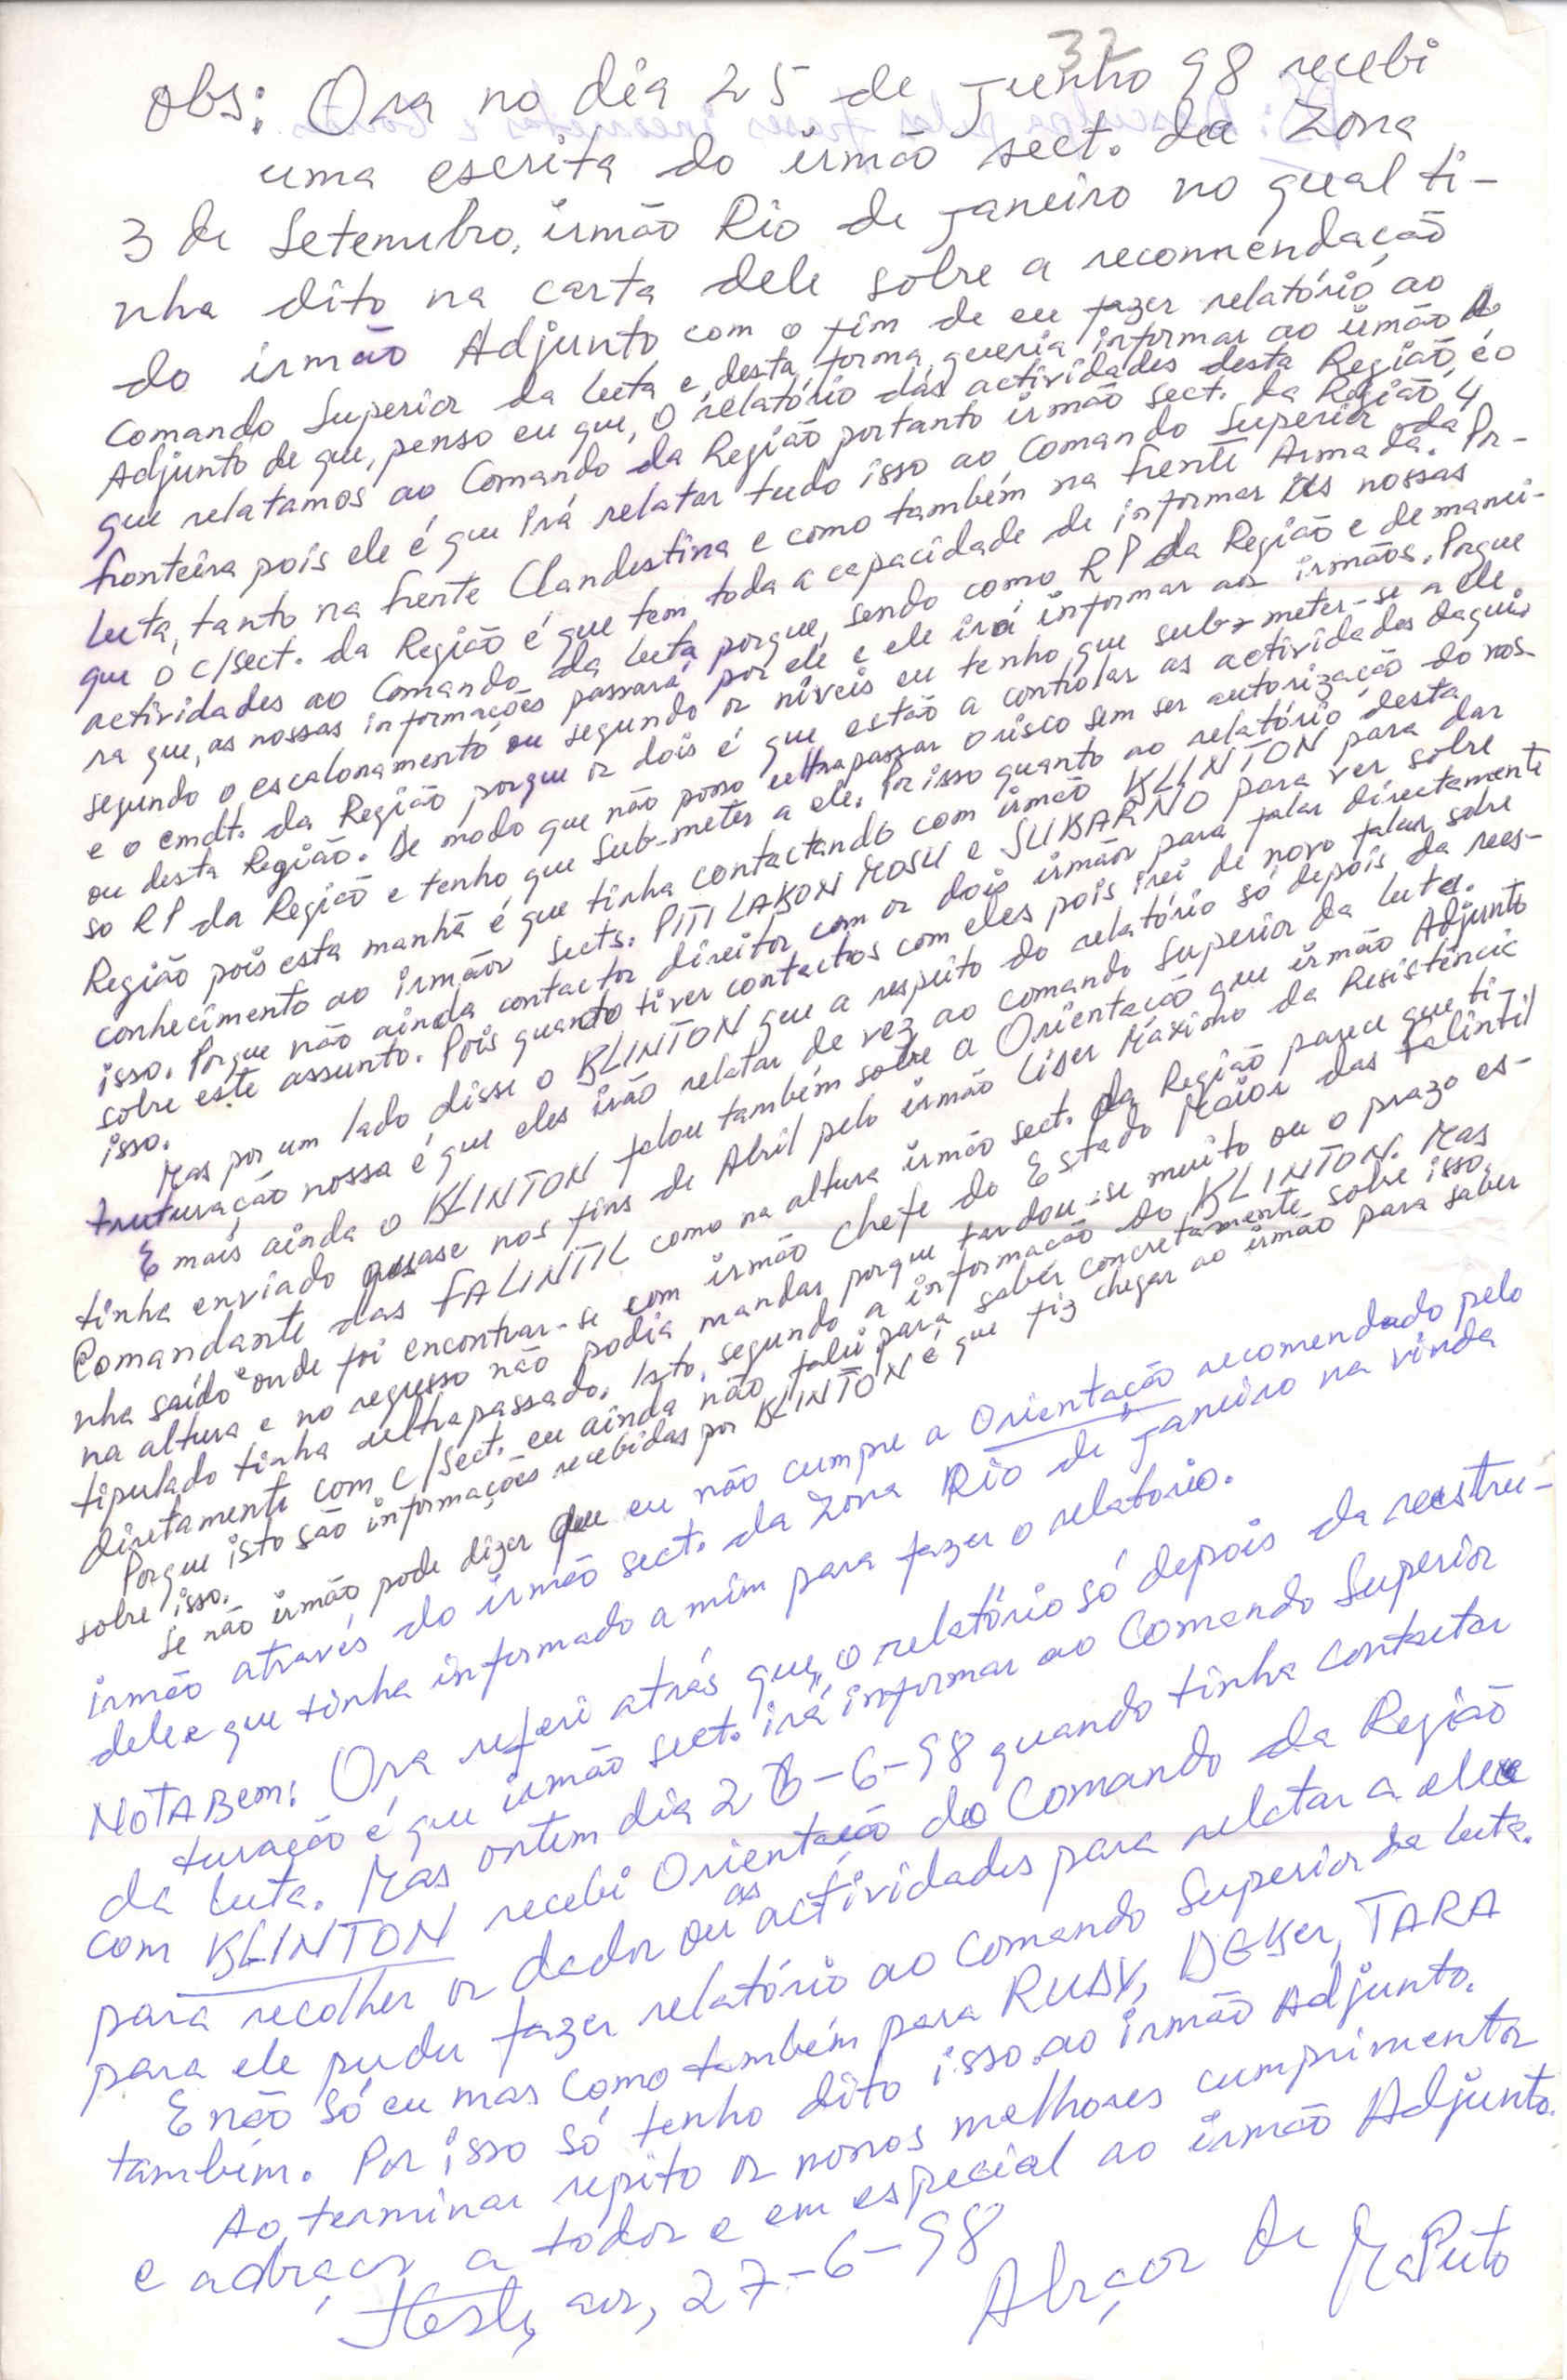 32
Obs: Ora no dia 25 de Junho 98 recebi
uma escrita do irmão sect. da Zona
3 de Setembro, irmão Rio de Janeiro no qual ti-
nha dito na carta dele sobre a recomendação
do irmão Adjunto com o fim de eu fazer relatório ao
Comando Superior da Luta e desta forma queria informar ao irmão
Adjunto de que, penso eu que, o relatório das actividades desta Região, é o
que relatamos ao Comando da Região portanto irmão sect. da Região 4
fronteira pois ele é que irá relatar tudo isso ao Comando Superior da
Luta, tanto na frente Clandestina e como também na frente Armada. Por-
que o c/sect. da Região é que tem toda a capacidade de informar as nossas
actividades ao Comando da Luta porque, sendo como RP da Região e de manei-
ra que, as nossas informações passará por ele e ele irá informar aos irmãos. Porque
segundo o escalonamento ou segundo os níveis eu tenho que sub-meter-se a ele
e o cmdt. da Região porque os dois é que estão a controlar as actividades daqui
ou desta Região. De modo que não posso ultrapassar o risco sem ser autorização do nos-
so RP da Região e tenho que sub-meter a ele. Por isso quanto ao relatório desta
Região pois esta manhã é que tinha contactando com irmão KLINTON para dar
conhecimento ao irmãos sects. PITILAKON MOSU e SUKARNO para ver sobre
isso. Porque não ainda contactos direitos com os dois irmãos para falar directamente
sobre este assunto. Pois quando tiver contactos com eles pois irei de novo falar sobre
isso.
Mas por um lado disse o KLINTON que a respeito do relatório só depois da rees-
truturação nossa é que eles irão relatar de vez ao comando Superior da Luta.
E mais ainda o KLINTON falou também sobre a Orientação que irmão Adjunto
tinha enviado quase nos fins de Abril pelo irmão Líder Máximo da Resistência
Comandante das FALINTIL como na altura irmão sect. da Região parece que ti-
nha saído e onde foi encontrar-se com irmão Chefe do Estado Maior das Falintil
na altura e no regresso não podia mandar porque tardou-se muito ou o prazo es-
tipulado tinha ultrapassado. Isto, segundo a informação do KLINTON. Mas
diretamente com c/Sect. eu ainda não falei para saber concretamente sobre isso.
Porque isto são informações recebidas por KLINTON é que fiz chegar ao irmão para saber
sobre isso.
Se não irmão pode dizer que eu não cumpre a Orientação recomendado pelo
irmão através do irmão sect. da Zona Rio de Janeiro na vinda
dele e que tinha informado a mim para fazer o relatório.
NOTABem: Ora referi atrás que, o relatório só depois da reestru-
turação é que irmão sect. irá informar ao Comando Superior
da Luta. Mas ontem dia 26-6-98 quando tinha contactar
com KLINTON recebi Orientação do Comando da Região
para recolher os dados ou as actividades para relatar a ele e
para ele puder fazer relatório ao Comando Superior da Luta.
E não só eu mas como também para RUDY, DEKer, TARA
também. Por isso só tenho dito isso ao irmão Adjunto.
Ao terminar repito os nossos melhores cumprimentos
e abraços a todos e em especial ao irmão Adjunto.
27-6-98
Abraços de MaPuto